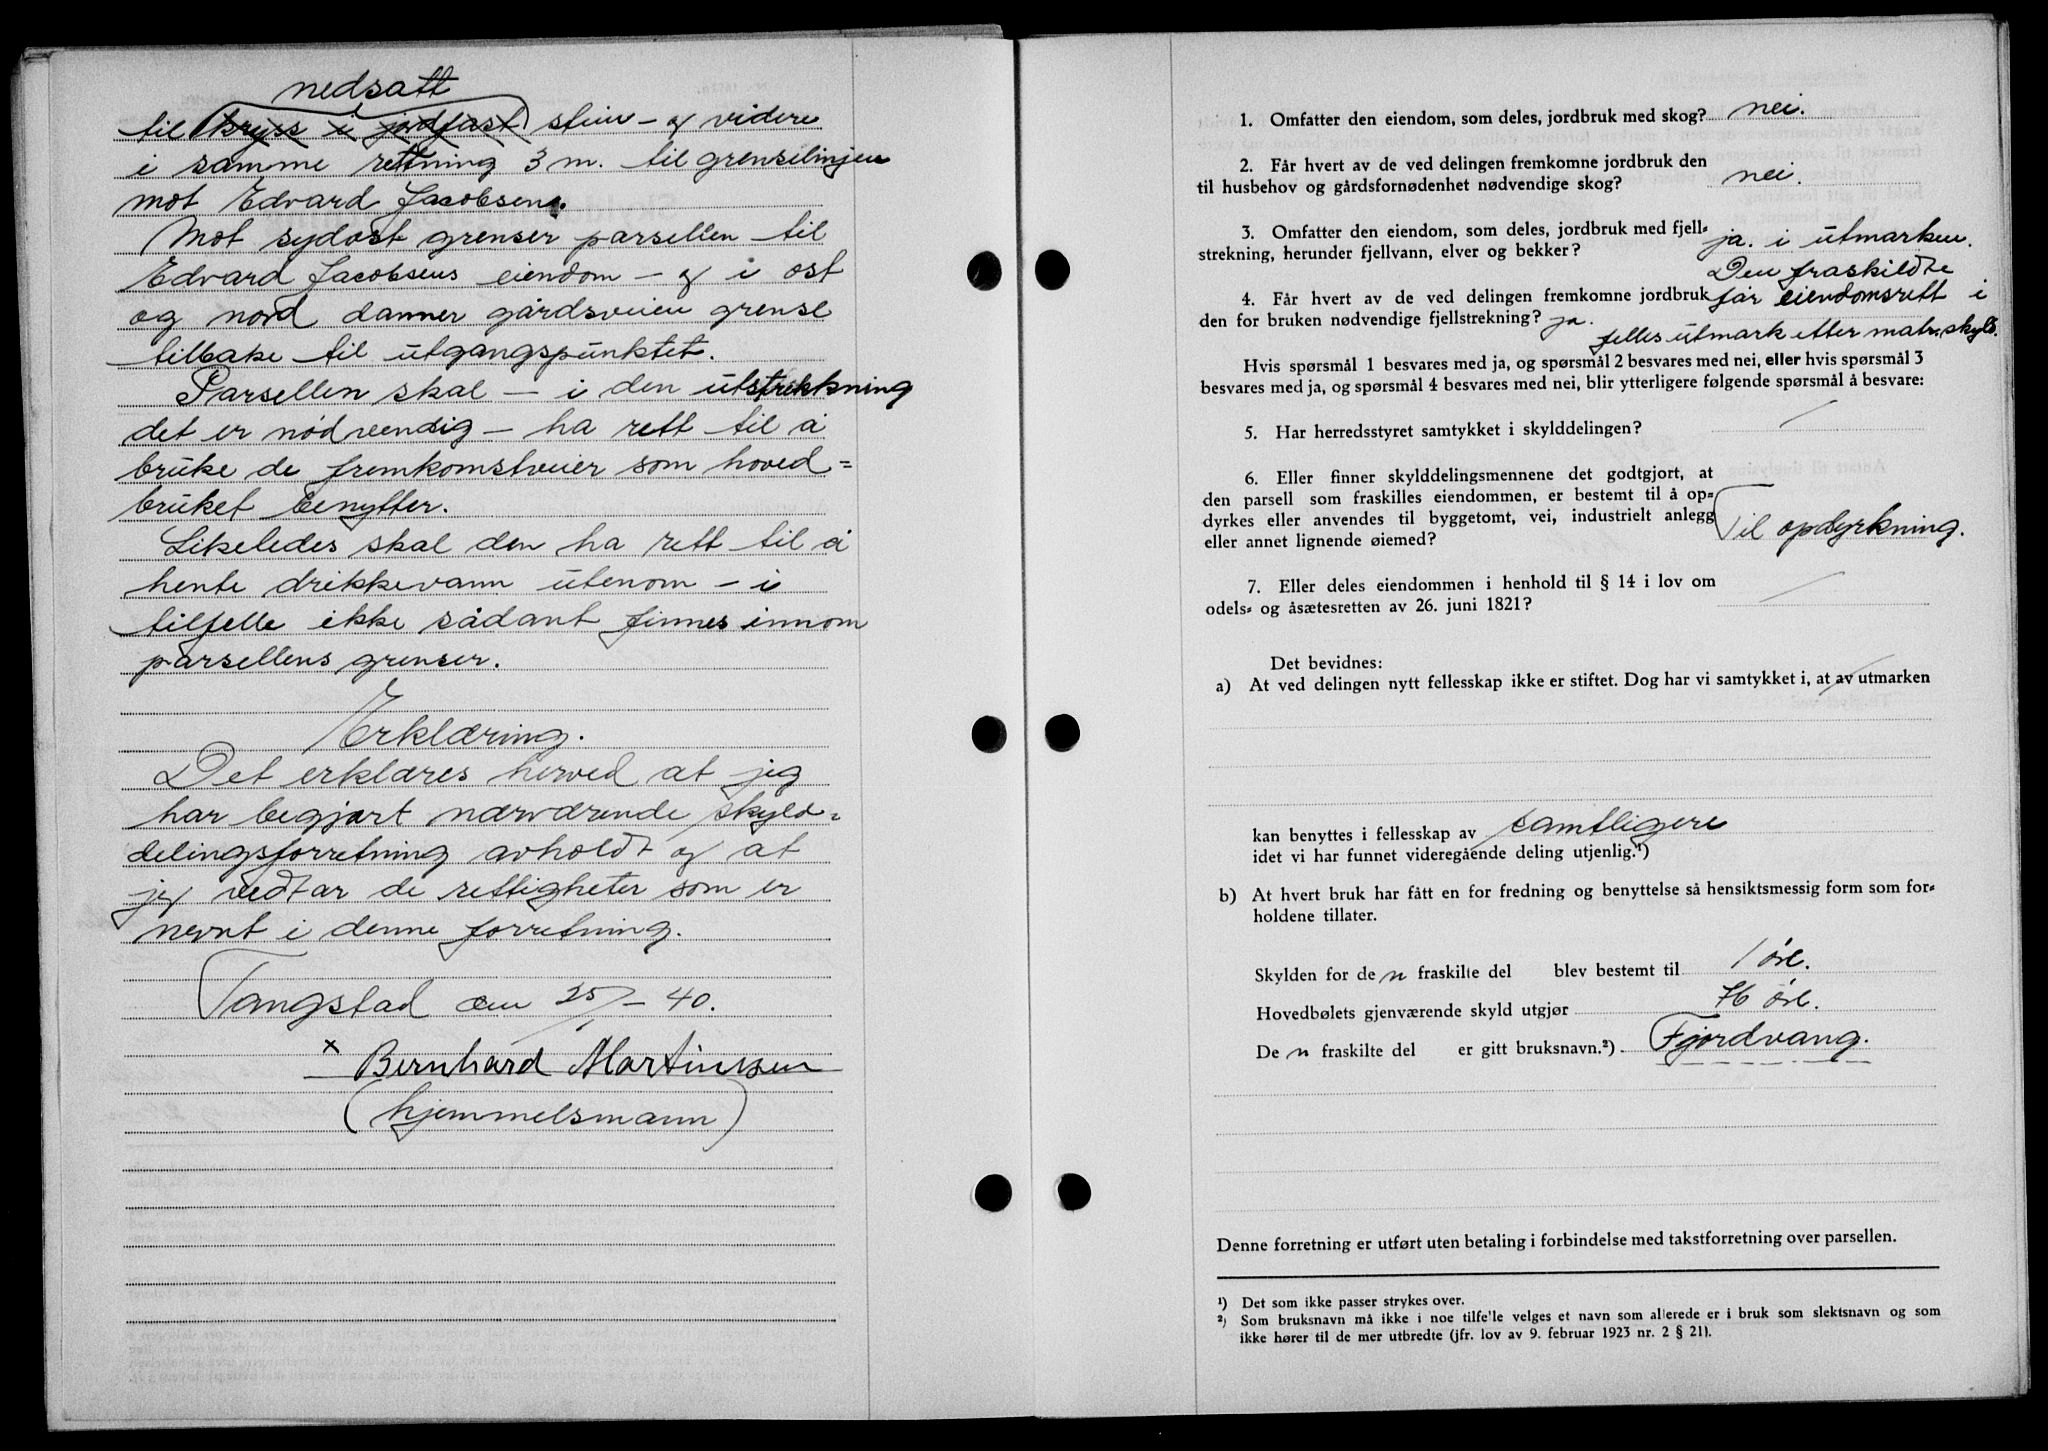 nedsatt
til kryss i jordfast stein - og videre
i samme rettning 3 m. til grenselinjen
mot Edvard Jacobsen.
Mot sydost grenser parsellen til
Edvard Jacobsens eiendom - og i ost
og nord danner gårdsveien grense
tilbake til utgangspunktet.
Parsellen skal - i den utstrekkning
det er nödvendig - ha rett til å
bruke de fremkomstveier som hoved=
bruket benytter.
Likeledes skal den ha rett til å
hente drikkevann utenom - i
tilfelle ikke sådant finnes innom
parsellens grenser.
Erklæring.
Det erklæres herved at jeg
har begjært nærværende skyld=
delingsforretning avholdt og at
jeg vedtar de rettigheter som er
nevnt i denne forretning.
Tangstad den 25/ - 40.
x Bernhard Martinssen
(hjemmelsmann)
1. Omfatter den eiendom, som deles, jordbruk med skog? nei.
2. Får hvert av de ved delingen fremkomne jordbruk den
til husbehov og gårdsfornødenhet nødvendige skog? nei.
3. Omfatter den eiendom, som deles, jordbruk med fjell=
strekning, herunder fjellvann, elver og bekker? ja. i utmarken.
Den fraskildte
4. Får hvert av de ved delingen fremkomne jordbruk får eiendomsrett i
den for bruken nødvendige fjellstrekning? ja. felles utmark etter matr. skyld.
Hvis spørsmål 1 besvares med ja, og spørsmål 2 besvares med nei, eller hvis spørsmål 3
besvares med ja, og spørsmål 4 besvares med nei, blir ytterligere følgende spørsmål å besvare:
5. Har herredsstyret samtykket i skylddelingen? /
6. Eller finner skylddelingsmennene det godtgjort, at
den parsell som fraskilles eiendommen, er bestemt til å op=
dyrkes eller anvendes til byggetomt, vei, industrielt anlegg
eller annet lignende øiemed? Til opdyrkning.
7. Eller deles eiendommen i henhold til § 14 i lov om
odels= og åsætesretten av 26. juni 1821? /
Det bevidnes:
a) At ved delingen nytt fellesskap ikke er stiftet. Dog har vi samtykket i, at av utmarken
kan benyttes i fellesskap av samtligere
idet vi har funnet videregående deling utjenlig.¹)
b) At hvert bruk har fått en for fredning og benyttelse så hensiktsmessig form som for=
holdene tillater.
Skylden for de n fraskilte del blev bestemt til 1 øre.
Hovedbølets gjenværende skyld utgjør 76 øre.
De n fraskilte del er gitt bruksnavn.²) Fjordvang.
Denne forretning er utført uten betaling i forbindelse med takstforretning over parsellen.
¹) Det som ikke passer strykes over.
²) Som bruksnavn må ikke i noe tilfelle velges et navn som allerede er i bruk som slektsnavn og som
ikke hører til de mer utbredte (jfr. lov av 9. februar 1923 nr. 2 § 21).